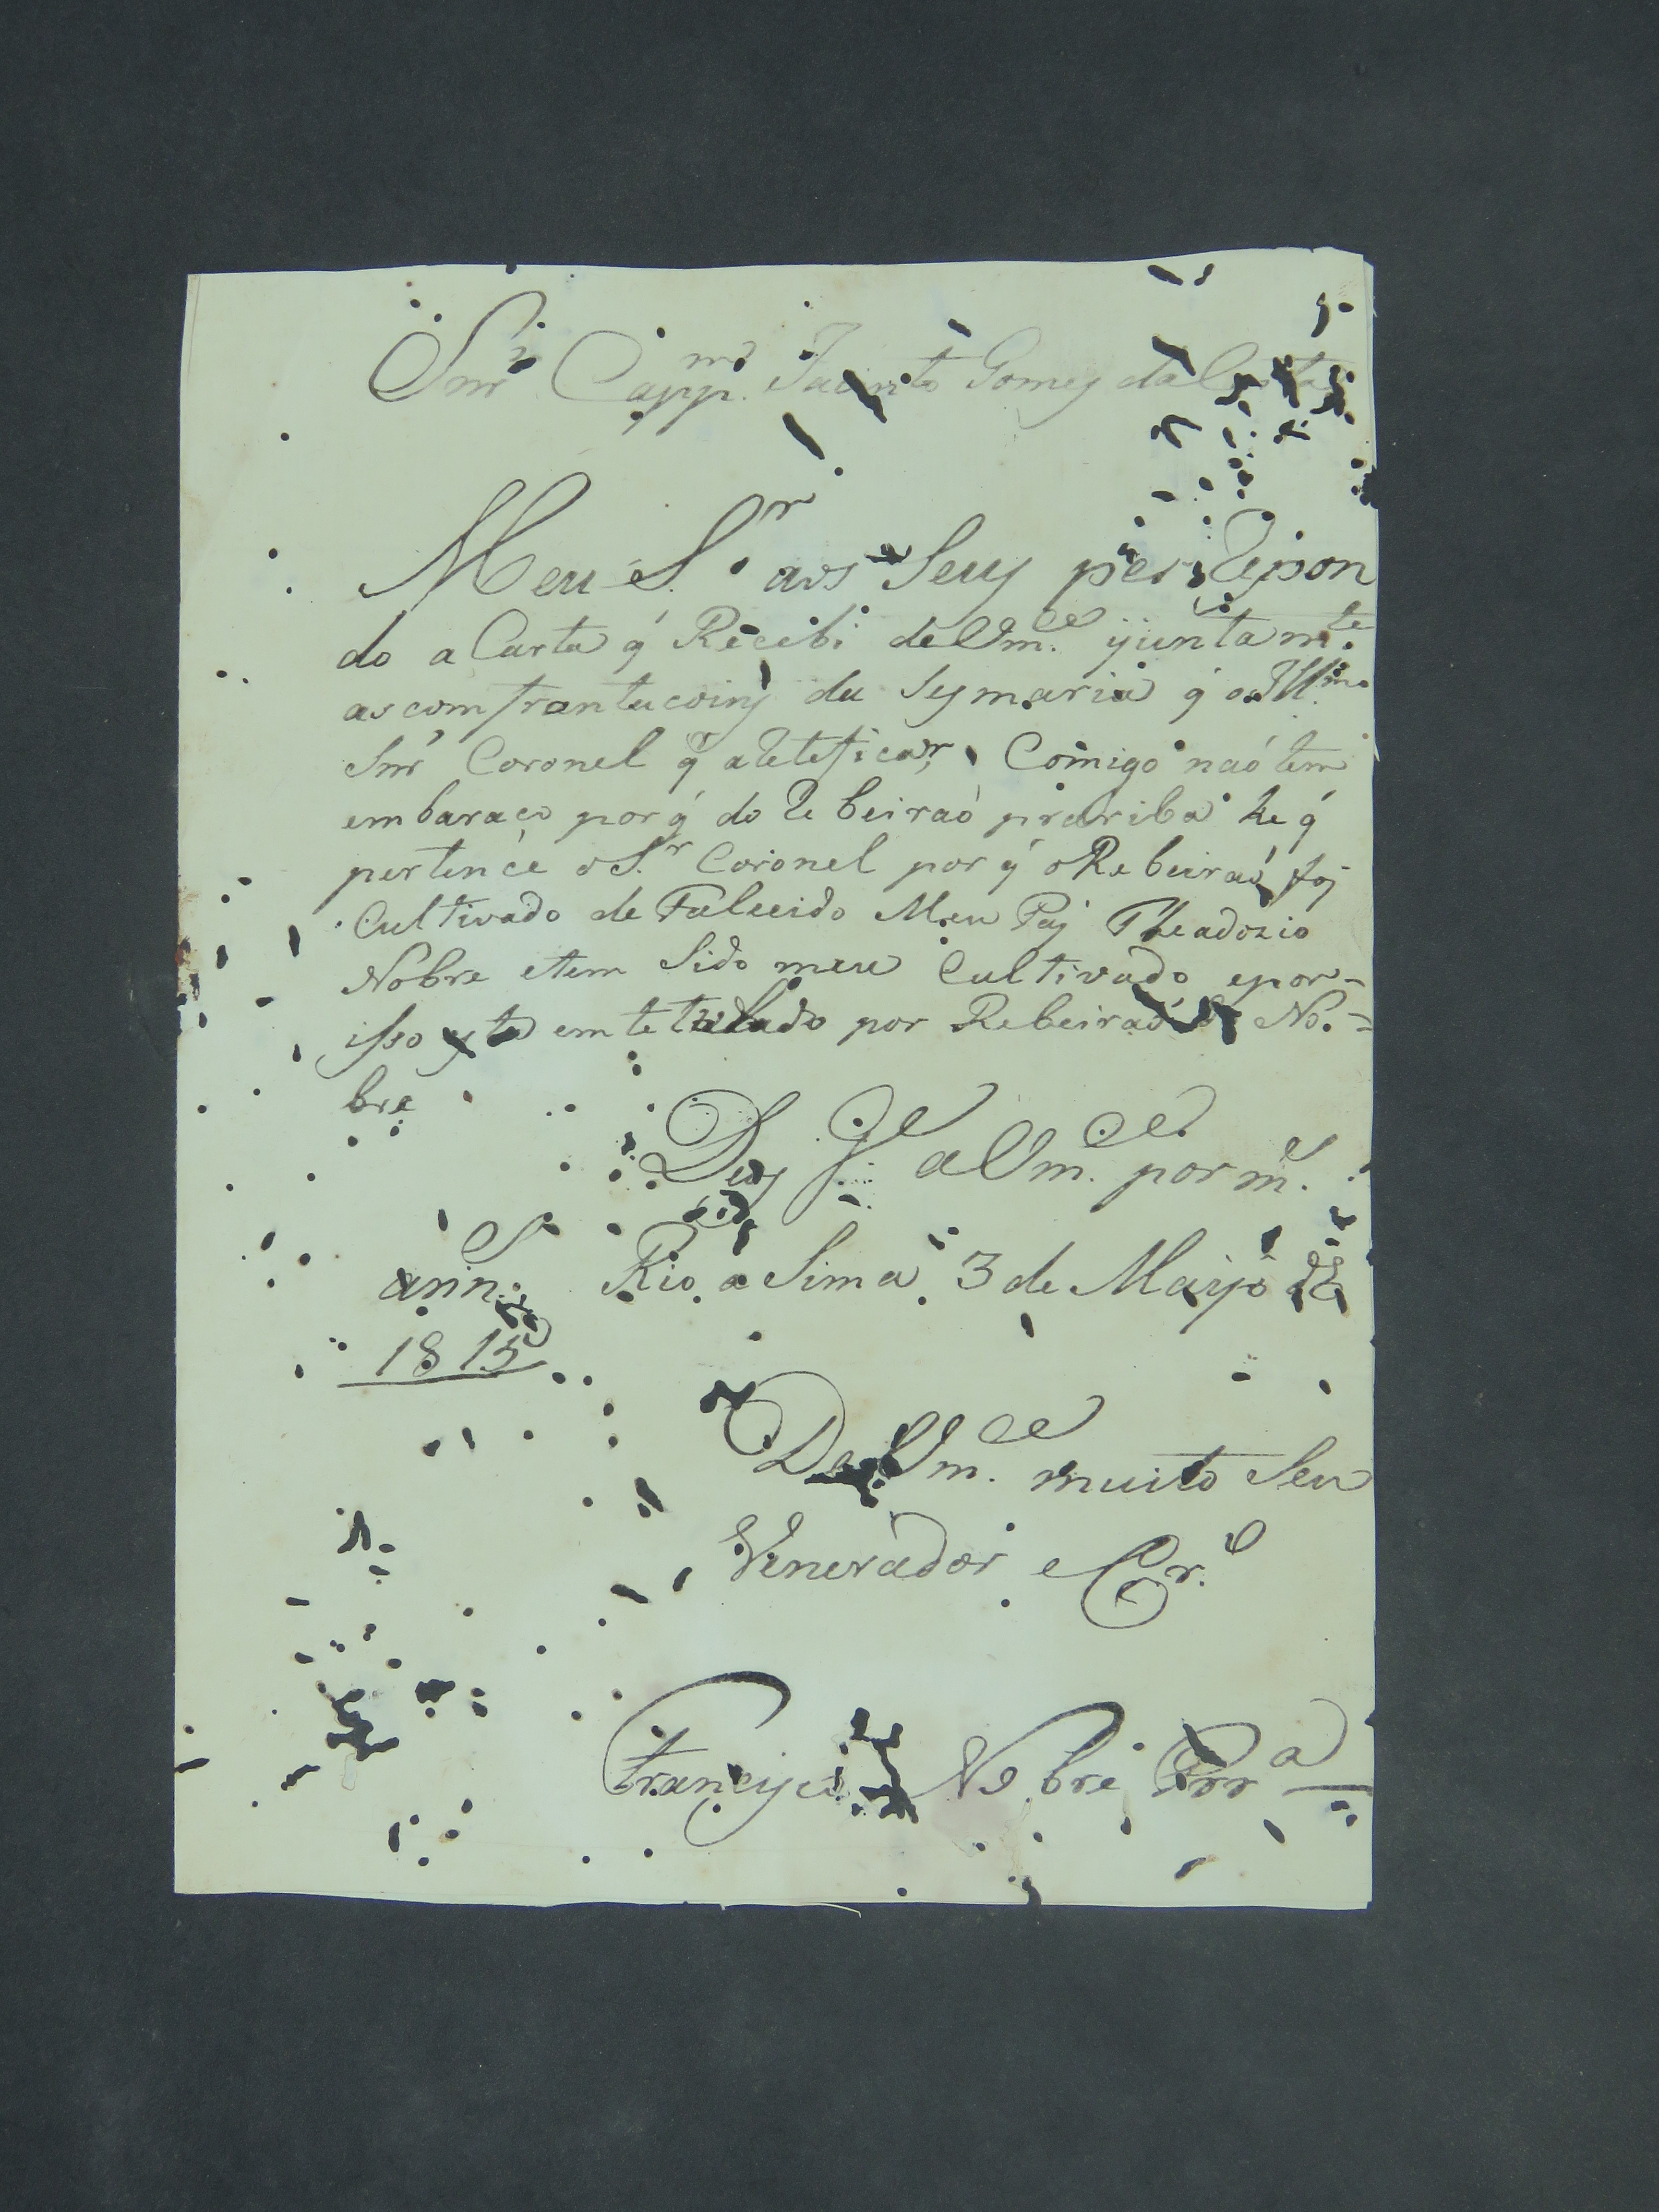 Snr Capp.mo Jacinto Gomes da Costa
Meu Sr. aos Seus pes Respon
do a Carta q́ Recebi de Vm.ce ejuntam.te
as comfrantacoins da Sesmaria q́ o Ill.mo
Snr Coronel qr ateteficar, Comigo naó tem
embaraço por q́ do Rebeiraó praríba he q́
pertence o S.r Coronel por q́ o Rebeiraó foi
Cultivado de Falecido Meu Pai Theadozio
Nobre etem Sido meu Cultivado epor-
isso esta emtetulado por Rebeiraó do No.-
bre
Deos G.e a Vm.ce por m.s
ann.s Rio a Sima 3 de Maiyo de
1815
De Vm.ce muito Seu
Venerador e Cr.o
Francisco Nobre Frr.a